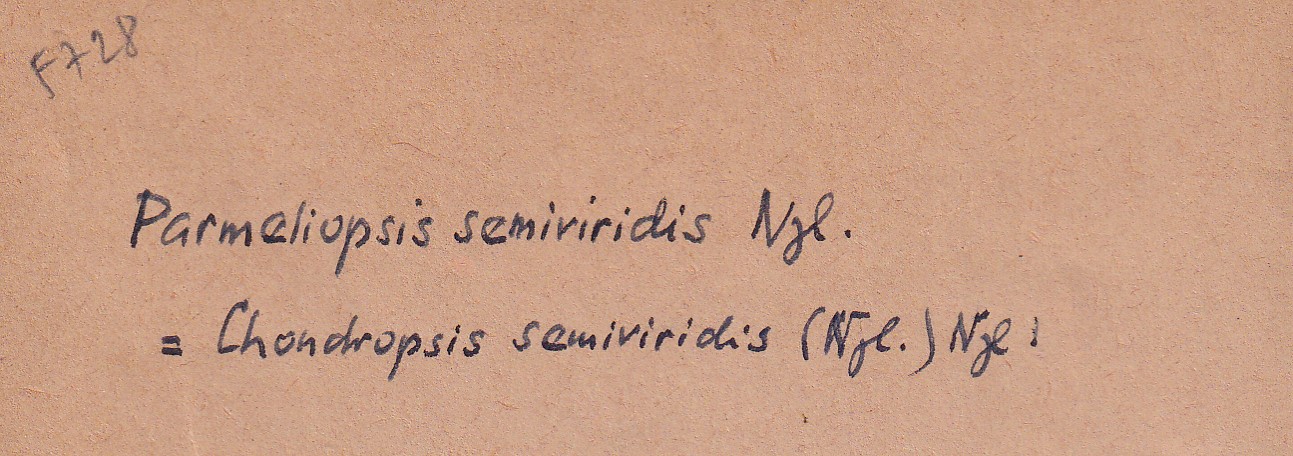 F728
Parmeliopsis semiviridis Nyl.
= Chondropsis semiviridis (Nyl.) Nyl!